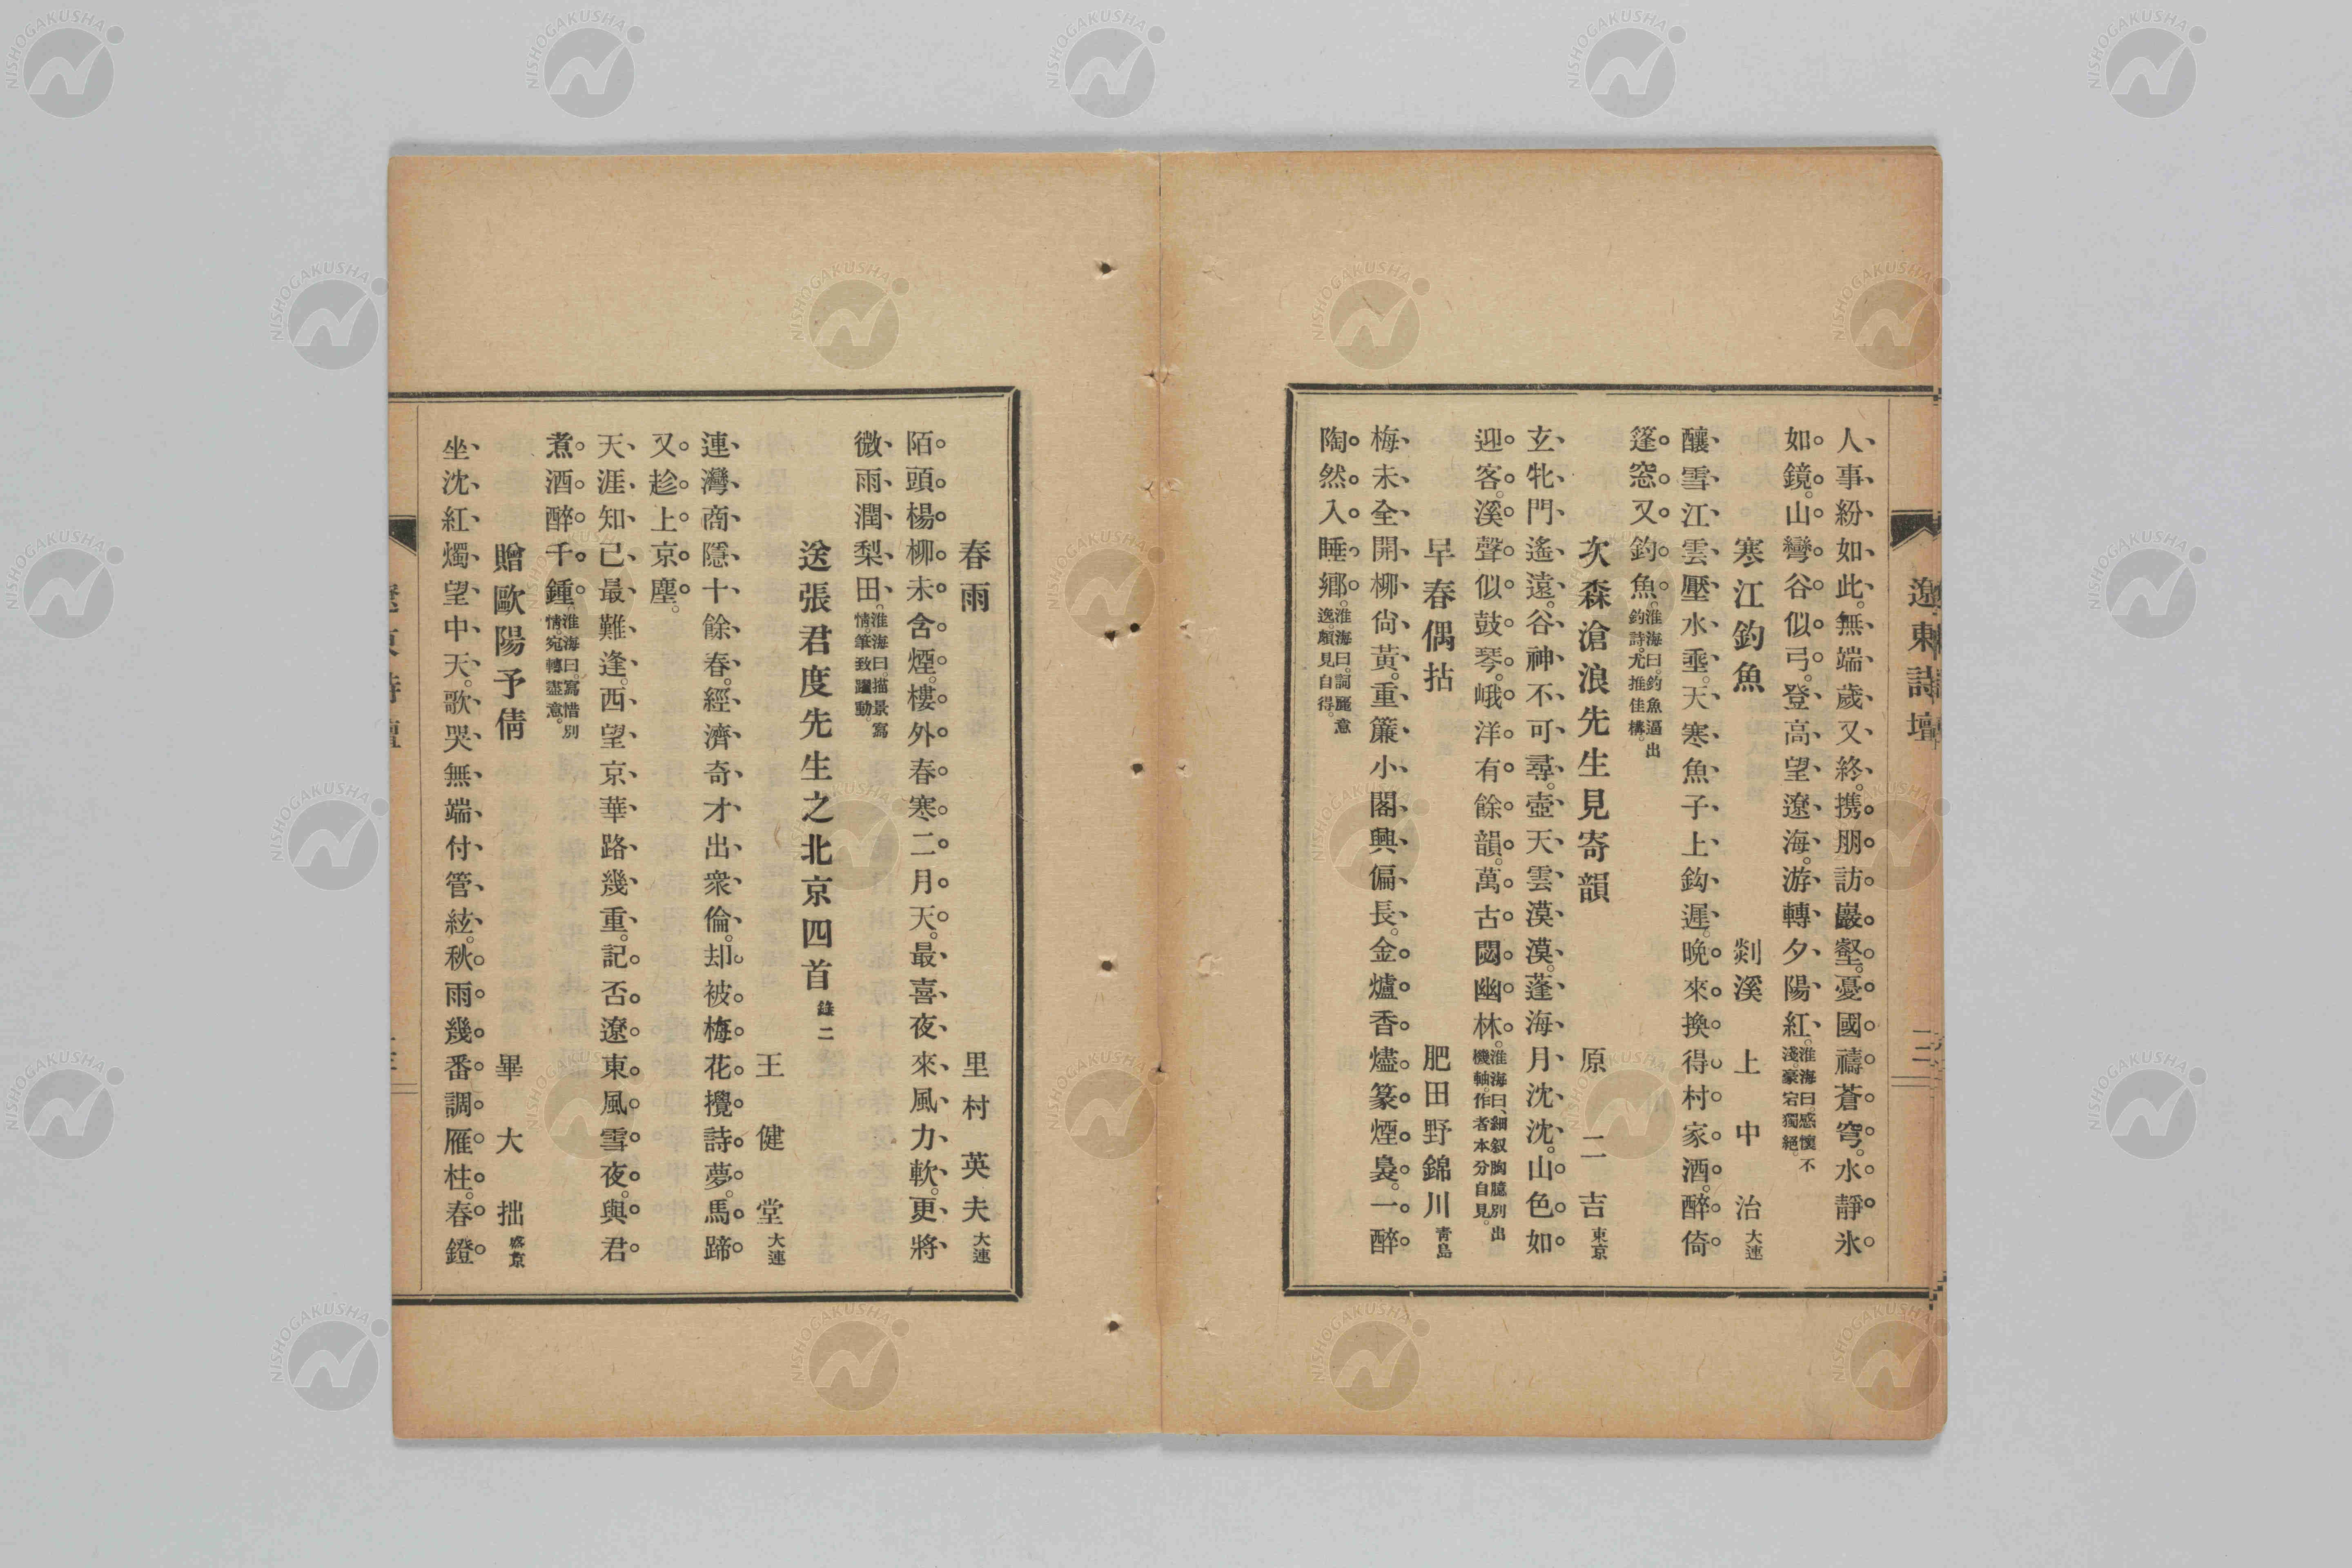 遼東詩壇
二
人事紛如此。無端歲又終。携朋訪巖壑。憂國禱蒼穹。水靜氷
如鏡。山彎谷似弓。登高望遼海。游轉夕陽紅。淮海曰。感懷不淺。豪宕獨絕。
寒江釣魚 剡溪 上中治 大連
釀雪江雲壓水垂。天寒魚子上鈎遲。晩來換得村家酒。醉倚
篷窓又釣魚。淮海曰。釣魚逼出釣詩。尤推佳構。
次森滄浪先生見寄韻 原二吉 東京
玄牝門遙遠。谷神不可尋。壺天雲漠漠。蓬海月沈沈。山色如
迎客。溪聲似鼓琴。峨洋有餘韻。萬古閟幽林。淮海曰、細叙胸臆別出機軸。作者本分自見。
早春偶拈 肥田野錦川 青島
梅未全開柳尙黃。重簾小閣興偏長。金爐香燼篆煙裊。一醉
陶然入睡鄉。淮海曰。詞麗意逸。頗見自得。
春雨 里村英夫 大連
陌頭楊柳未含煙。樓外春寒二月天。最喜夜來風力軟。更將
微雨潤梨田。淮海曰。描景寫情筆致躍動。
送張君度先生之北京四首 錄二
王健堂 大連
連灣商隱十餘春。經濟奇才出衆倫。却被梅花攪詩夢。馬蹄
又趁上京塵。
天涯知已最難逢。西望京華路幾重。記否遼東風雪夜。與君
煮酒醉千鍾。淮海曰。寫惜別情宛轉盡意。
贈歐陽予倩 畢大拙 盛京
坐沈紅燭望中天。歌哭無端付管絃。秋雨幾番調雁柱。春鐙